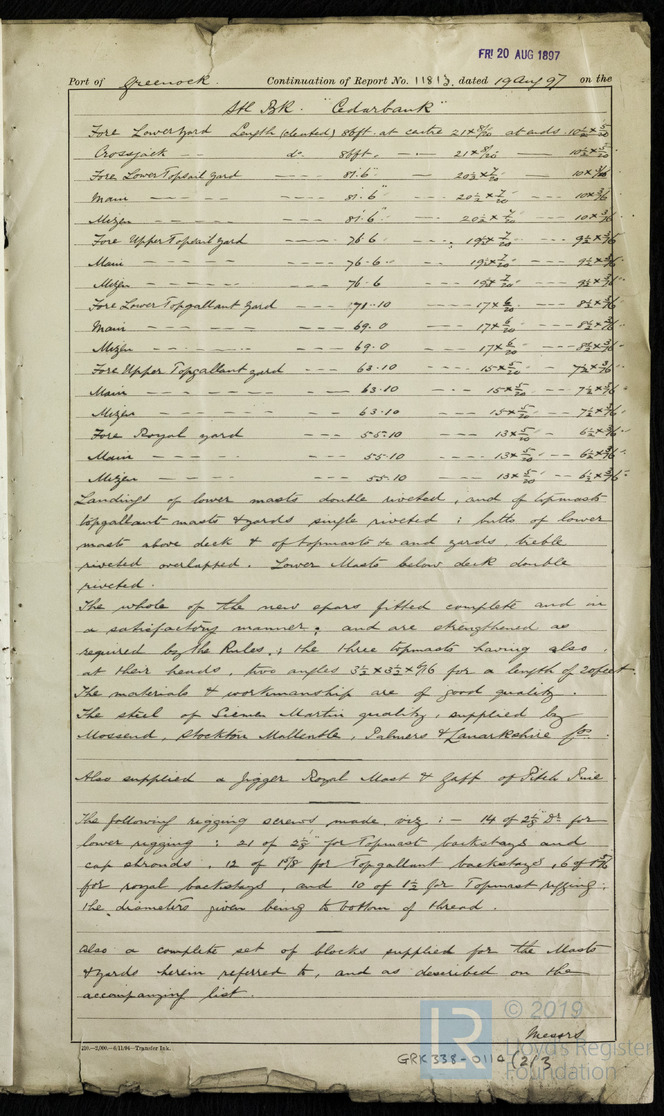 FRI 20 AUG 1897
Port of Greenock. Continuation of Report No. 11813, dated 19 Aug 97 on the
Stl Bk. "Cedarbank"
Fore Lower yard Length (cleated) 86ft. at centre 21 x 8/20 at ends 10½ x 5/20
Crossjack - - do. 86ft. - - 21 x 8/20 - 10½ x 5/20
Fore Lower Topsail yard - - - - 81.6" - - - 20½ x 7/20 - - - 10 x 3/16
Main - - - - - - 81.6" - - - 20½ x 7/20 - - - 10 x 3/16
Mizen - - - - - - 81.6" - - - 20½ x 7/20 - - - 10 x 3/16
Fore Upper Topsail yard - - - - 76.6 - - - 19½ x 7/20 - - - 9½ x 3/16
Main - - - - - - 76.6 - - - 19½ x 7/20 - - - 9½ x 3/16
Mizen - - - - - - 76.6 - - - 19½ x 7/20 - - - 9½ x 3/16
Fore Lower Topgallant yard - - - 71.10 - - - 17 x 6/20 - - - 8½ x 3/16
Main - - - - - - 69.0 - - - 17 x 6/20 - - - 8½ x 3/16
Mizen - - - - - - 69.0 - - - 17 x 6/20 - - - 8½ x 3/16
Fore Upper Topgallant yard - - - 63.10 - - - 15 x 5/20 - - - 7½ x 3/16
Main - - - - - - 63.10 - - - 15 x 5/20 - - - 7½ x 3/16
Mizen - - - - - - 63.10 - - - 15 x 5/20 - - - 7½ x 3/16
Fore Royal yard - - - 55.10 - - - 13 x 5/20 - - - 6½ x 3/16
Main - - - - - - 55.10 - - - 13 x 5/20 - - - 6½ x 3/16
Mizen - - - - - - 55.10 - - - 13 x 5/20 - - - 6½ x 3/16
Landings of lower masts double riveted, and of topmasts
topgallant masts & yards single riveted; butts of lower
masts above deck & of topmasts &c and yards, treble
riveted overlapped. Lower Masts below deck double
riveted.
The whole of the new spars fitted complete and in
a satisfactory manner; and are strengthened as
required by the Rules; the three topmasts having also,
at their heads, two angles 3½ x 3½ x 6/16 for a length of 20 feet.
The materials & workmanship are of good quality.
The steel of Siemen Martin quality, supplied by
Mossend, Stockton Malleable, Palmers & Lanarkshire Cos.
Also supplied a Jigger Royal Mast & Gaff of Pitch Pine
The following rigging screws made, viz: - 14 of 2⅛" Dr for
lower rigging: 21 of 2⅛" for Topmast backstays and
cap shrouds, 12 of 1⅝ for Topgallant backstays, 6 of
for royal backstays, and 10 of 1½ for Topmast rigging;
the diameters given being to bottom of thread.
Also a complete set of blocks supplied for the Masts
& yards herein referred to, and as described on the
accompanying list.
Messrs
210.—2,000.—6/11/94—Transfer Ink.
GRK 338-0114 (2/3
© 2019
LR
Lloyd's Register
Foundation